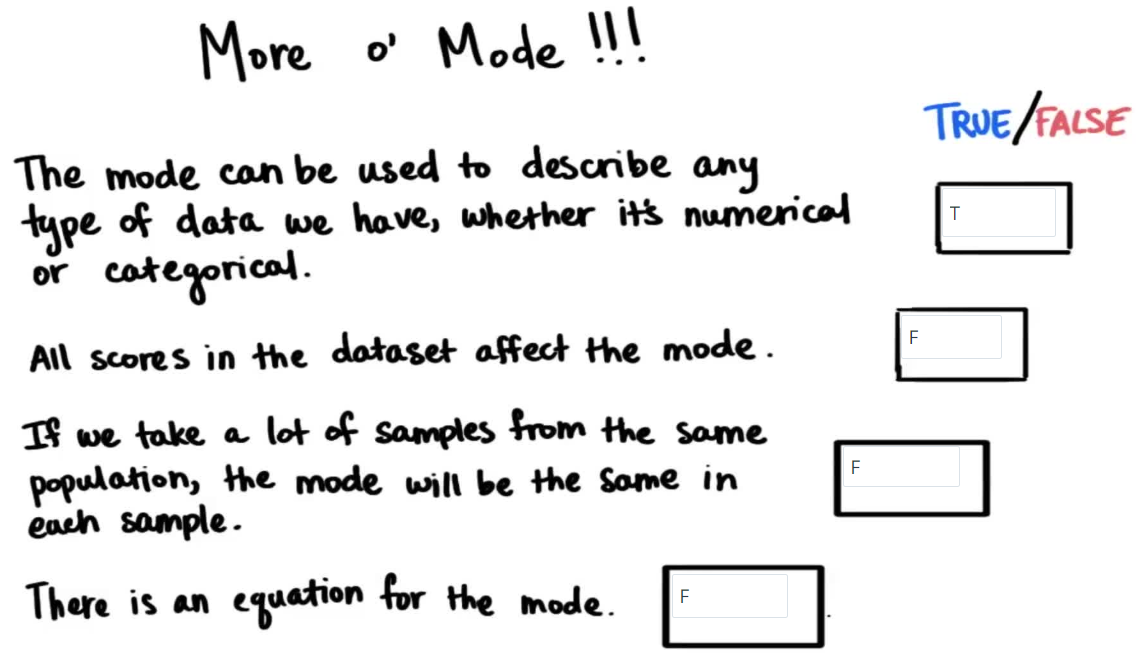 More o' Mode !!!
TRUE/FALSE
The mode can be used to describe any
type of data we have, whether it's numerical
or categorical.
T
All scores in the dataset affect the mode.
F
If we take a lot of samples from the same
population, the mode will be the same in
each sample.
F
There is an equation for the mode.
F